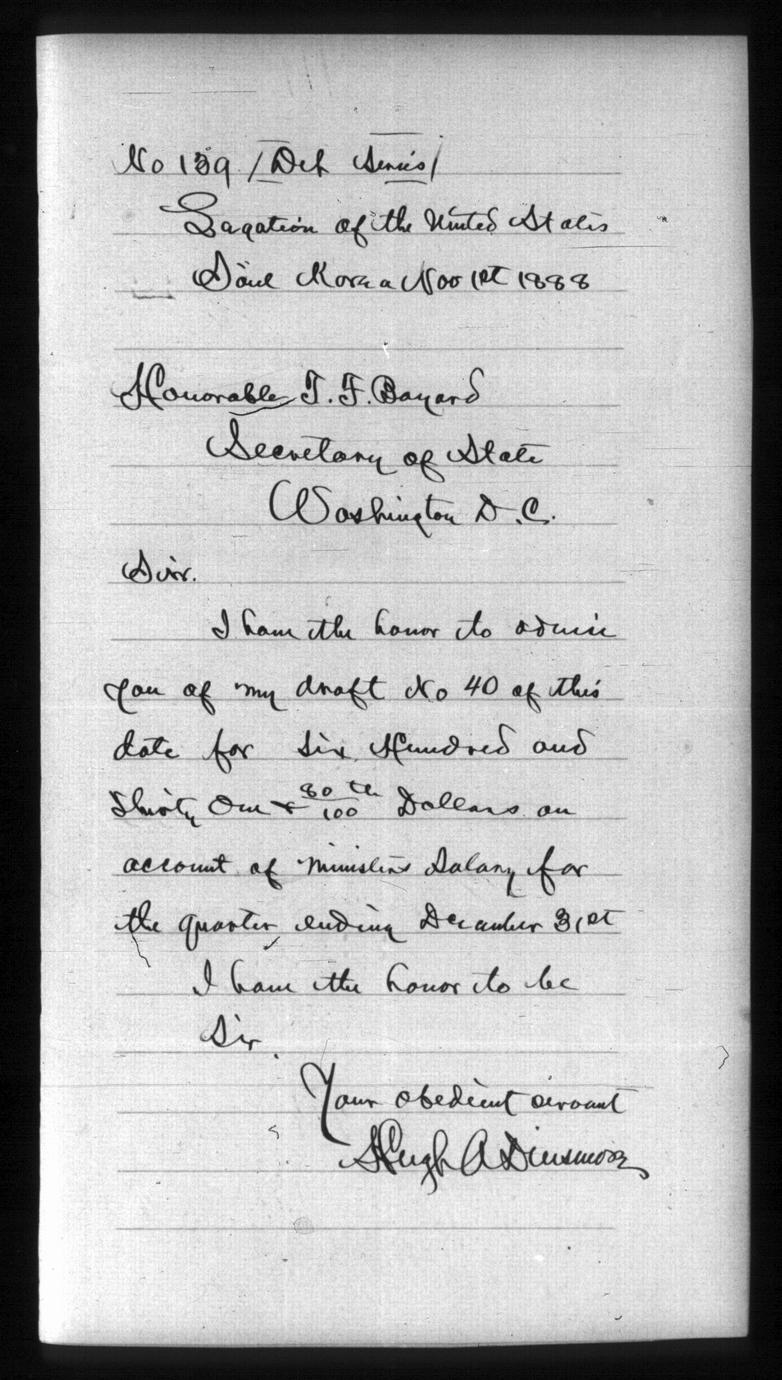 No 139 /Dep Series/
Legation of the United States
Söul Korea Nov 1st 1888
Honorable T. F. Bayard
Secretary of State
Washington D.C.
Sir.
I have the honor to advise
you of my draft No 40 of this
date for Six Hundred and
thirty One & 80/100 th Dollars on
account of Ministers Salary for
the quarter ending December 31st
I have the honor to be
Sir.
Your obedient servant
Hugh A Dinsmore